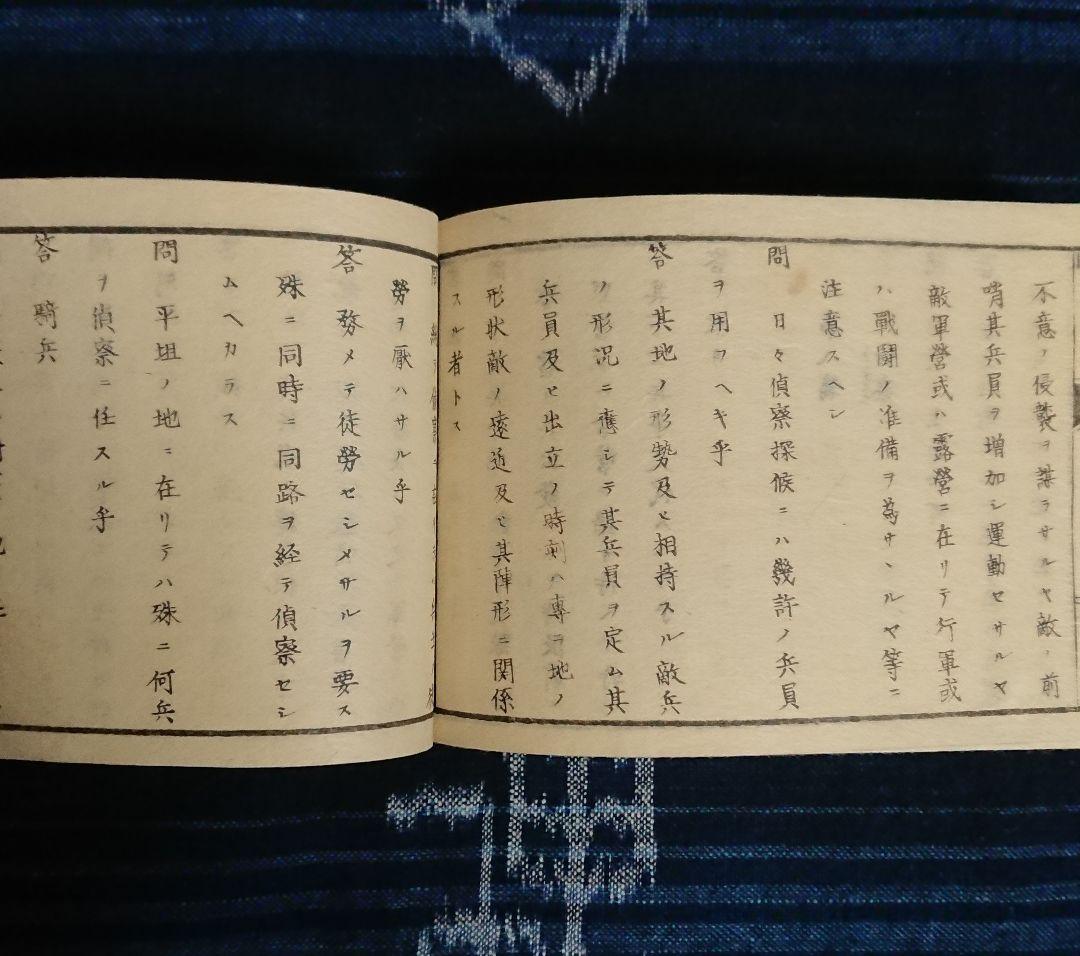 不意ノ侵襲ヲ謀ラサルヤ敵ノ前
哨其兵員ヲ増加シ運動セサルヤ
敵軍營或ハ露營ニ在リテ行軍或
ハ戰闘ノ准備ヲ為サヽルヤ等ニ
注意スヘシ
問 日々偵察探候ニハ幾許ノ兵員
ヲ用ヲヘキ乎
答 其地ノ形勢及ヒ相持スル敵兵
ノ形況ニ應シテ其兵員ヲ定ム其
兵員及ヒ出立ノ時刻ハ專ラ地ノ
形状敵ノ遠近及ヒ其陣形ニ関係
スル者トス
問
勞ヲ厭ハサル乎
答 務メテ徒勞セシメサルヲ要ス
殊ニ同時ニ同路ヲ経テ偵察セシ
ムヘカラス
問 平坦ノ地ニ在リテハ殊ニ何兵
ヲ偵察ニ任スル乎
答 騎兵